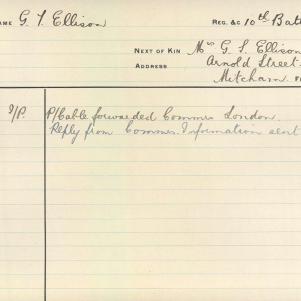 NAME G. T. Ellison REG. &c 10th Batt
NEXT OF KIN Mrs G. S. Ellison
ADDRESS Arnold Street.
Mitcham.
P/Cable forwarded Commrs London.
Reply from Commrs. Information sent